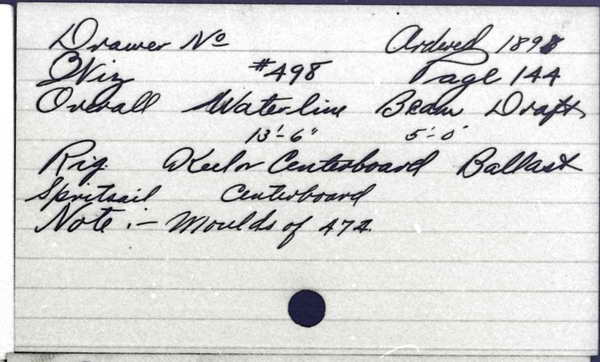 Drawer No Ordered 1898
Wiz #498 Page 144
Overall Waterline Beam Draft
13'-6" 5'-0"
Rig Keel or Centerboard Ballast
Spritsail Centerboard
Note :- Moulds of 474